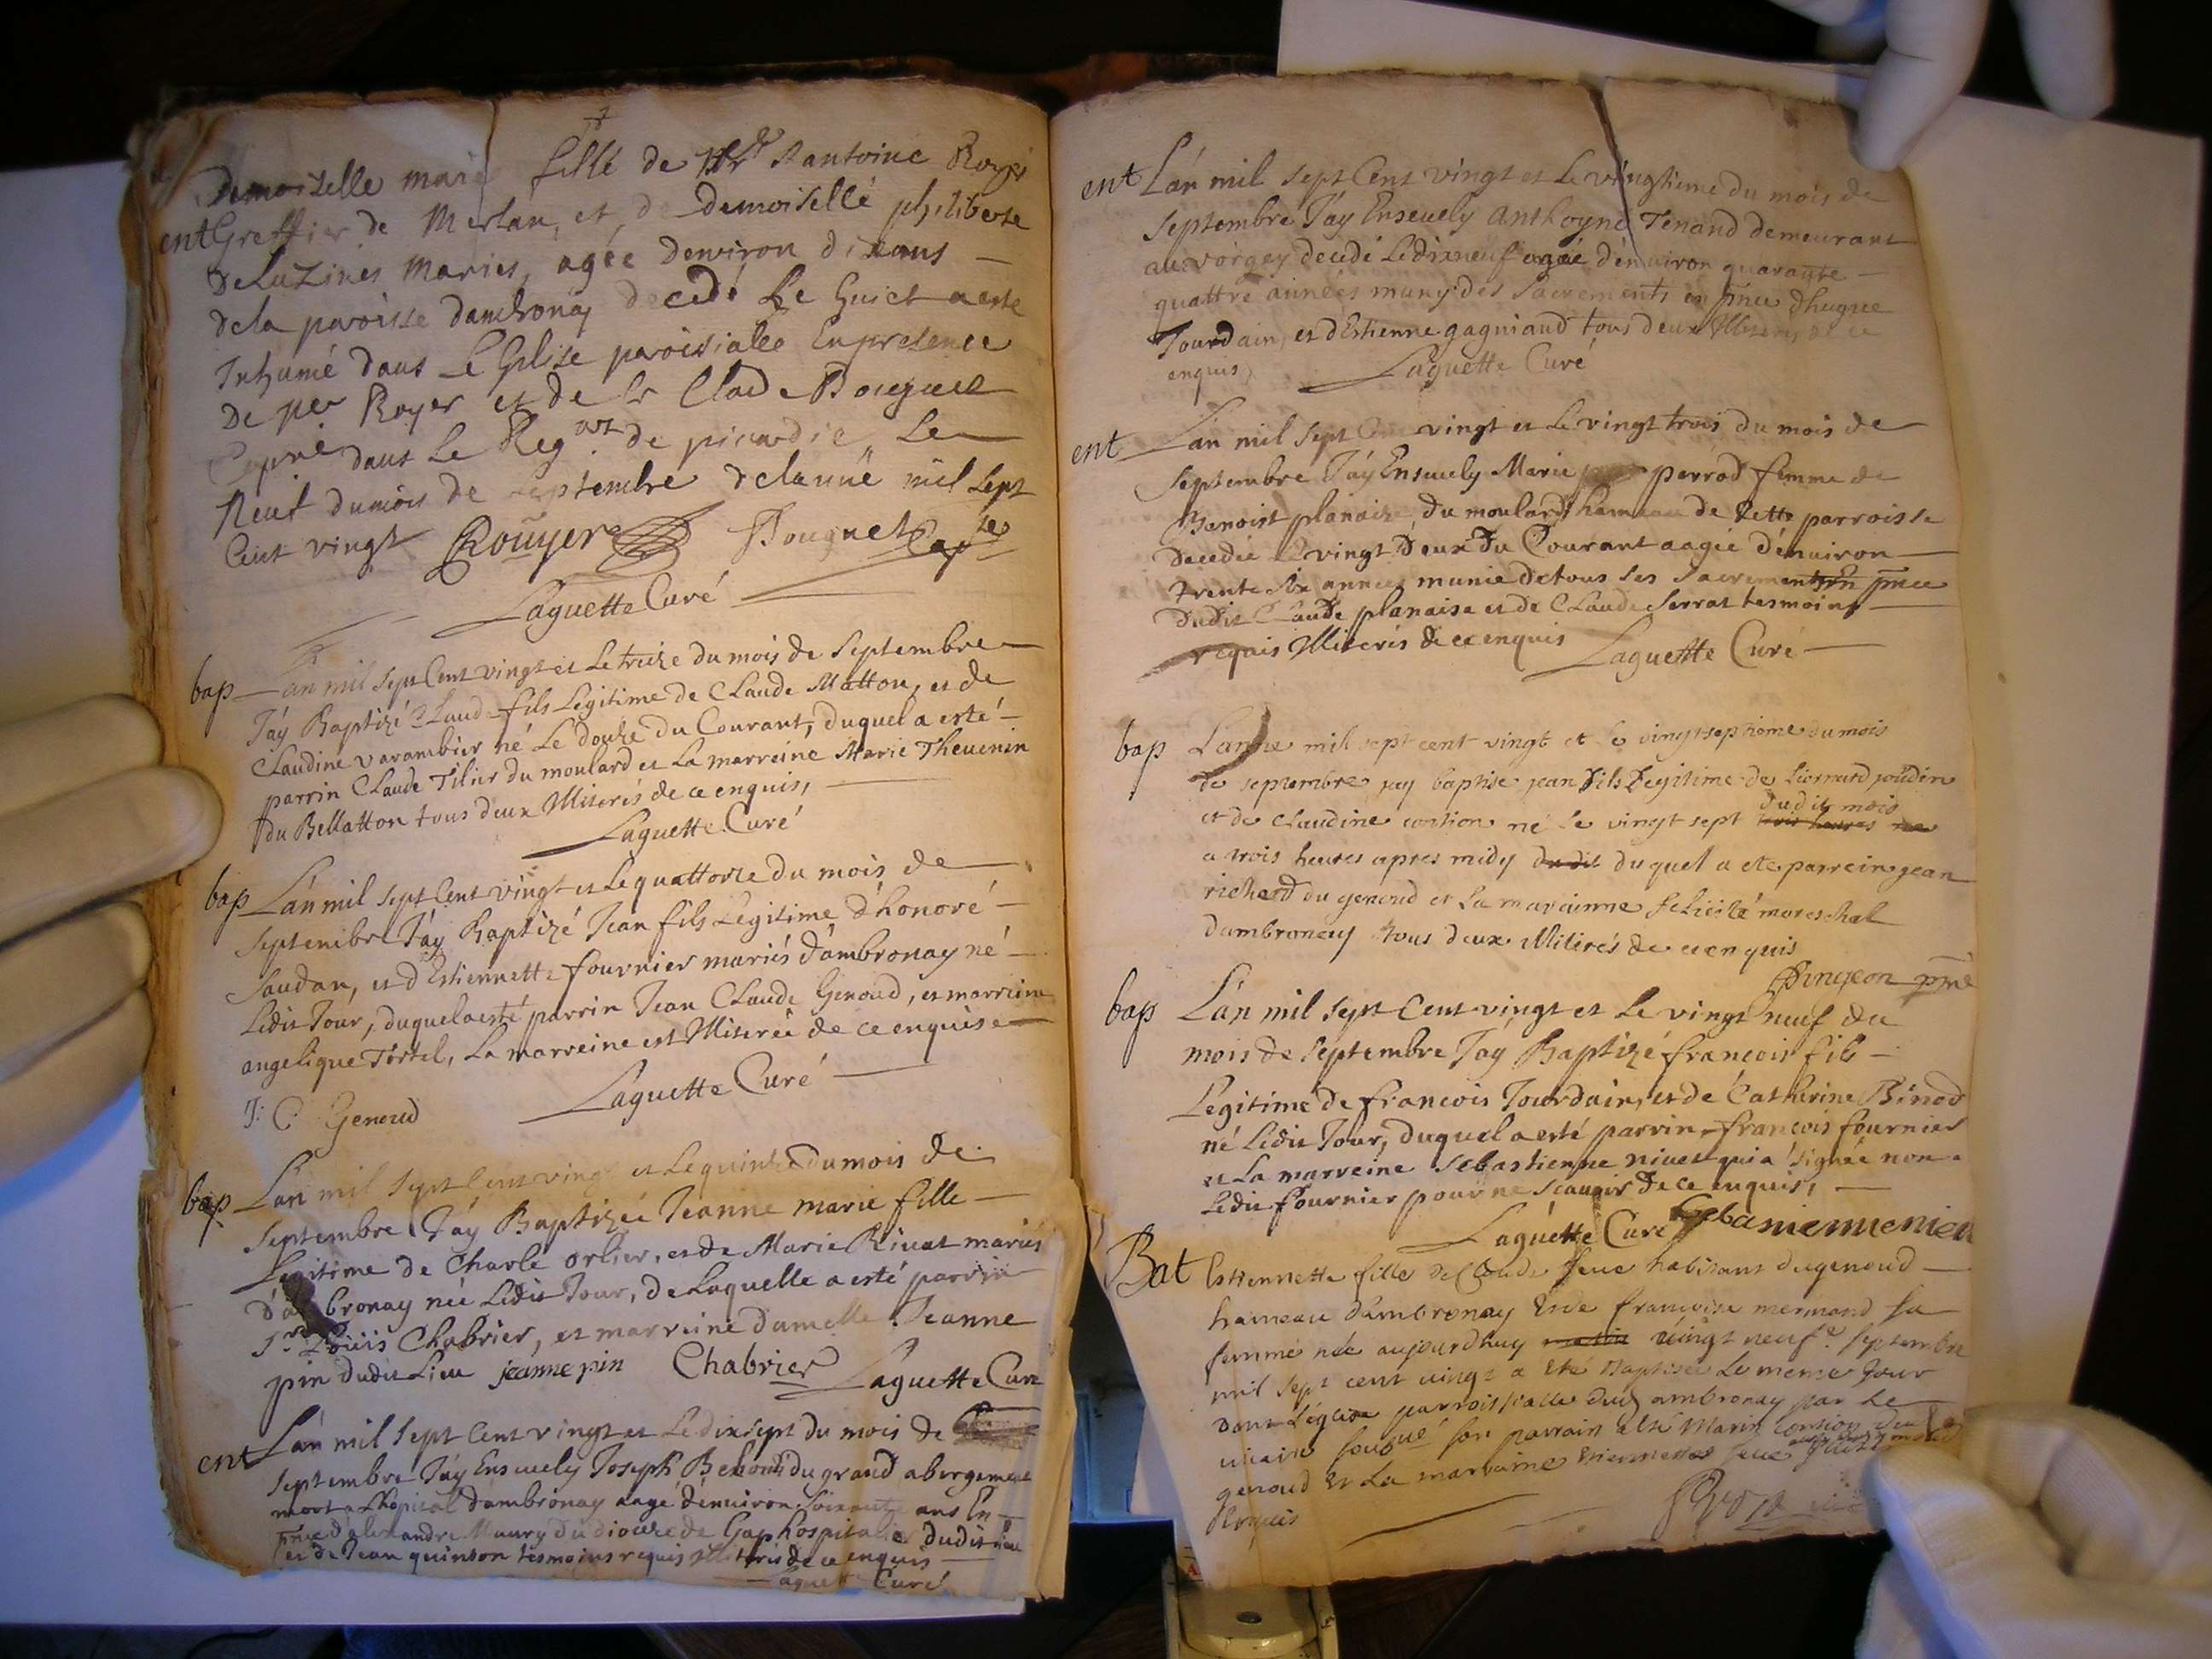 Demoiselle marie fille de Mr Antoine Royer
ent Greffier de Merlan, et de demoisellé philiberte
de Luzines Mariés, agée denviron dix ans
dela paroisse dambronay decedé Le huict a esté
Inhumé dans LEglise paroissialle En presence
De per Royer et de Sr Claude Bouquet
dans Le Regnt de picardie, Le
Neuf dumois de septembre de lanné mil sept
Cent vingt Rouyer Bouquet
Laguette Curé
bap L'an mil sept Cent vingt et Le treize du mois de Septembre
J'ay Baptizé Claude fils Legitime de Claude Matton, et de
Claudine varambier né Le douze du Courant, duquel a esté
parrin Claude Tilier du moulard et La marreine Marie Thevenin
du Bellatton tous deux Illiterés de ce enquis,
Laguette Curé
bap L'an mil sept Cent vingt et Le quattorze du mois de
septembre J'ay Baptizé Jean fils Legitime d'honoré
Saudan, et d'Estiennette fournier mariés d'ambronay né
Ledit Jour, duquel a esté parrin Jean Claude Genoud, et marreine
angelique Tortel, La marreine est Illiterée de ce enquise
Laguette Curé
J: C: Genoud
bap L'an mil sept Cent vingt et Le quinze du mois de
Septembre J'ay Baptizée Jeanne marie fille
Legitime de Charle orlier, et de Marie Rivat mariés
d'ambronay née Ledit Jour, de Laquelle a esté parrin
Sr Louis Chabrier, et marreine damelle Jeanne
pin dudit Lieu jeanne pin Chabrier Laguette Curé
ent L'an mil sept Cent vingt et Le dixsept du mois de
septembre J'ay Ensevely Joseph du grand abergement
mort a L'hopital d'ambronay aagé d'environ soixante ans En
pnce d'alexandre Maury du dioceze de Gap hospitalier dudit lieu
et de Jean quinson tesmoins requis Illiterés de ce enquis
Laguette Curé
ent L'an mil sept Cent vingt et Le vingtieme du mois de
septembre J'ay Ensevely Anthoyne Tenand demeurant
au vorgey decedé Le dixneuf agée d'environ quarante
quattre années muny des Sacrements en pnce d'hugue
Jourdain, et d'Estienne gagniaud tous deux Illiterés de ce
enquis, Laguette Curé
ent L'an mil sept Cent vingt et Le vingt trois du mois de
Septembre J'ay Ensevely Marie perrod femme de
Benoist planaize, du moulard hameau de Cette parroisse
decedée Le vingt deux du Courant aagée d'environ
trente six années munie de tous ses Sacrements En pnce
dudit Claude planaise et de Claude Serrat tesmoins
requis Illiterés de ce enquis Laguette Curé
bap L'anne mil sept cent vingt et le vingt septieme du mois
de septembre jay baptise jean fils Legitime de Liernard joüdin
dudit mois
et de claudine cortion né le vingt sept trois heures
a trois heures apres midy dudit duquel a ete parrein jean
richerd du genoud et La marainne felicité mareschal
dambronay tous deux Illiterés de ce enquis
bap L'an mil sept Cent vingt et Le vingt neuf du
mois de septembre J'ay Baptizé francois fils
Legitime de francois Jourdain, et de Catherine Binod
né Ledit Jour, duquel a esté parrin francois fournier
et La marreine Sebastienne nivet qui a signée non
Ledit fournier pour ne scauoir de ce enquis,
Laguette Curé
Bat Estiennette fille de Claude feue habitant du genoud
hameau d'ambronay Et de francoise mermand sa
femme née aujourdhuy vingt neufe. septembre
mil sept cent vingt a Eté Baptisée Le meme jour
dans Léglise parroissialle dud ambronay par Le
vicaire son parrain a Eté Marin cortion du
genoud Et La marraine Etiennette feue
Requis